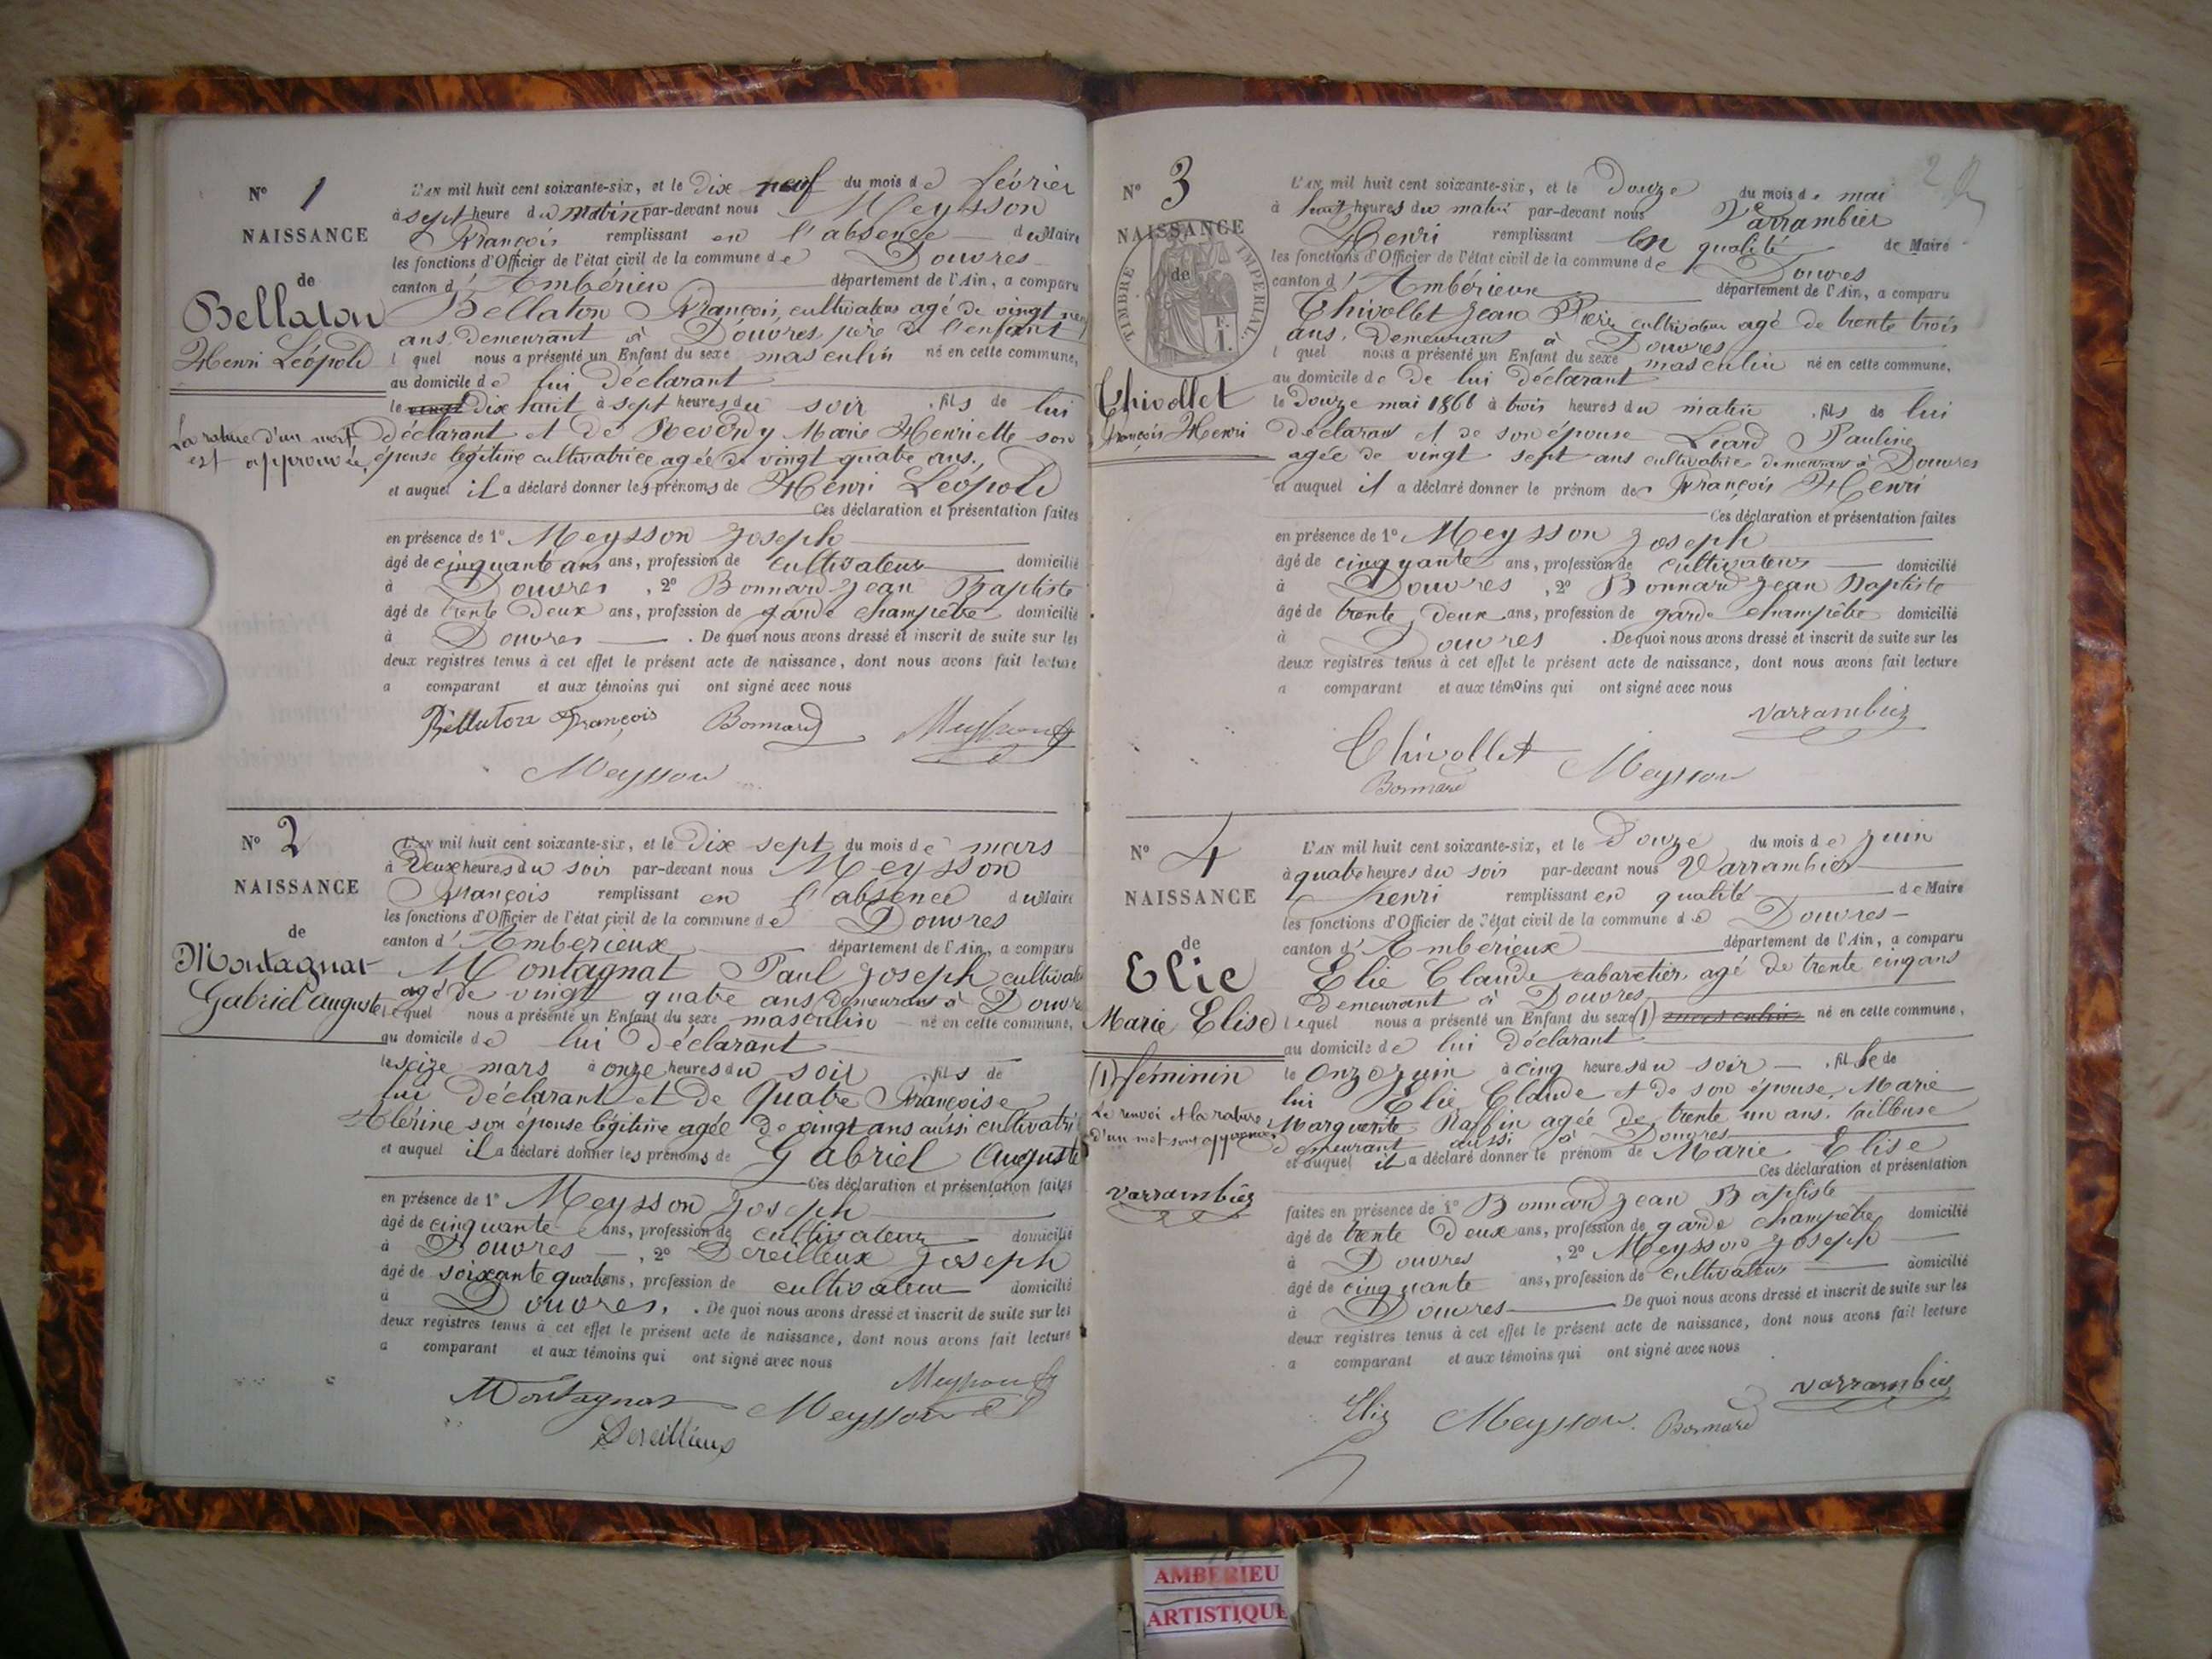 N° 1
NAISSANCE
de
Bellaton
Henri Léopold
La rature d'un mot
est approuvée
L'AN mil huit cent soixante-six, et le Dix neuf du mois de février
à sept heure du matin par-devant nous Meysson
François remplissant en l'absence du Maire
les fonctions d'Officier de l'état civil de la commune de Douvres
canton d'Ambérieu département de l'Ain, a comparu
Bellaton François, cultivateur agé de vingt neuf
ans, demeurant à Douvres, père de l'enfant
l quel nous a présenté un Enfant du sexe masculin né en cette commune,
au domicile de lui déclarant
le vingt dix huit à sept heures du soir , fils de lui
déclarant et de Reverdy Marie Henriette son
épouse légitime cultivatrice agée de vingt quatre ans.
et auquel il a déclaré donner les prénoms de Henri Léopold
Ces déclaration et présentation faites
en présence de 1° Meysson Joseph
âgé de cinquante ans ans, profession de cultivateur domicilié
à Douvres , 2° Bonnard Jean Baptiste
âgé de trente deux ans, profession de garde champêtre domicilié
à Douvres . De quoi nous avons dressé et inscrit de suite sur les
deux registres tenus à cet effet le présent acte de naissance, dont nous avons fait lecture
a comparant et aux témoins qui ont signé avec nous
Bellaton François Bonnard Meysson
Meysson
N° 2
NAISSANCE
de
Montagnat
Gabriel auguste
L'AN mil huit cent soixante-six, et le Dix sept du mois de mars
à Deux heures du soir par-devant nous Meysson
François remplissant en l'absence du Maire
les fonctions d'Officier de l'état civil de la commune de Douvres
canton d'Ambérieux département de l'Ain, a comparu
Montagnat Paul Joseph cultivate
agé de vingt quatre ans, demeurant à Douvre
lequel nous a présenté un Enfant du sexe masculin né en cette commune,
au domicile de lui déclarant
le seize mars à onze heures du soir , fils de
lui déclarant et de Quatre Françoise
son épouse légitime agée de vingt ans aussi cultivatri
et auquel il a déclaré donner les prénoms de Gabriel Auguste
Ces déclaration et présentation faites
en présence de 1° Meysson Joseph
âgé de cinquante ans, profession de cultivateur domicilié
à Douvres , 2° Dereilleux Joseph
âgé de soixante quatre ans, profession de cultivateur domicilié
à Douvres. . De quoi nous avons dressé et inscrit de suite sur les
deux registres tenus à cet effet le présent acte de naissance, dont nous avons fait lecture
a comparant et aux témoins qui ont signé avec nous
Meysson
Montagnat Meysson
Dereilleux
N° 3
NAISSANCE
de
TIMBRE IMPERIAL
F.
1.
Chivollet
François Henri
2
L'AN mil huit cent soixante-six, et le Douze du mois de mai
à huit heures du matin par-devant nous Varrambier
Henri remplissant en qualité de Maire
les fonctions d'Officier de l'état civil de la commune de Douvres
canton d'Ambérieux département de l'Ain, a comparu
Chivollet Jean Pierre cultivateur agé de trente trois
ans, demeurant à Douvres
l quel nous a présenté un Enfant du sexe masculin né en cette commune,
au domicile de de lui déclarant
le Douze mai 1866 à trois heures du matin , fils de lui
déclarant et de son épouse Liard Pauline
agée de vingt sept ans cultivatrice demeurant à Douvres
et auquel il a déclaré donner le prénom de François Henri
Ces déclaration et présentation faites
en présence de 1° Meysson Joseph
âgé de cinquante ans, profession de cultivateur domicilié
à Douvres , 2° Bonnard Jean Baptiste
âgé de trente deux ans, profession de garde champêtre domicilié
à Douvres . De quoi nous avons dressé et inscrit de suite sur les
deux registres tenus à cet effet le présent acte de naissance, dont nous avons fait lecture
a comparant et aux témoins qui ont signé avec nous
Varrambier
Chivollet Meysson
Bonnard
N° 4
NAISSANCE
de
Elie
Marie Elise
(1) féminin
Le renvoi et la rature
d'un mot sont approuvés
Varrambier
L'AN mil huit cent soixante-six, et le Douze du mois de juin
à quatre heures du soir par-devant nous Varrambier
henri remplissant en qualité de Maire
les fonctions d'Officier de l'état civil de la commune de Douvres
canton d'Ambérieux département de l'Ain, a comparu
Elie Claude cabaretier, agé de trente cinq ans
demeurant à Douvres
lequel nous a présenté un Enfant du sexe (1) masculin né en cette commune,
au domicile de lui déclarant
le onze juin à cinq heures du soir , fille de
lui Elie Claude et de son épouse, Marie
Marguerite Raffin agée de trente un ans, tailleuse
demeurant aussi à Douvres
et auquel il a déclaré donner le prénom de Marie Elise
Ces déclaration et présentation
faites en présence de 1° Bonnard Jean Baptiste
âgé de trente deux ans, profession de garde champêtre domicilié
à Douvres , 2° Meysson Joseph
âgé de cinquante ans, profession de cultivateur domicilié
à Douvres De quoi nous avons dressé et inscrit de suite sur les
deux registres tenus à cet effet le présent acte de naissance, dont nous avons fait lecture
a comparant et aux témoins qui ont signé avec nous
Varrambier
Elie Meysson. Bonnard
AMBERIEU
ARTISTIQUE